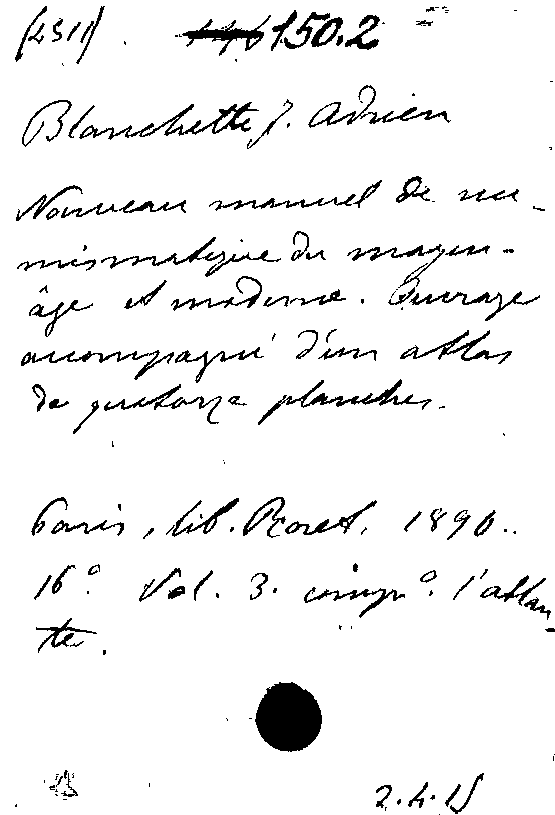 (2511) 150.2
Blanchette J. Adrien
Nouveau manuel de nu-
mismatique du moyen-
âge et moderne. Ouvrage
accompagné d'un atlas
de quatorze planches.
Paris, lib. Roret, 1890.
16° Vol. 3. compr° l'atlan-
te.
2.4.15